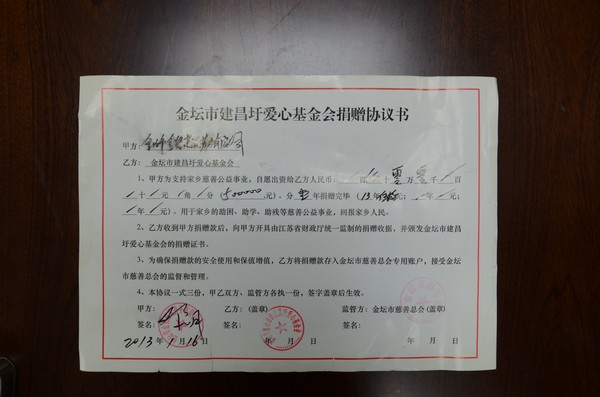 金坛市建昌圩爱心基金会捐赠协议书
甲方:
乙方: 金坛市建昌圩爱心基金会
1、甲方为支持家乡慈善公益事业,自愿出资给乙方人民币: 百 十 零 万 零 千 百
十 元 角 分( )。分 年捐完毕( 13年 元; 年 元;
年 元)。用于家乡的助困、助学、助残等慈善公益事业,回报家乡人民。
2、乙方收到甲方捐赠款后,向甲方开具由江苏省财政厅统一监制的捐赠收据,并颁发金坛市建昌
圩爱心基金会的捐赠证书。
3、为确保捐赠款的安全使用和保值增值,乙方将捐赠款存入金坛市慈善总会专用账户,接受金坛
市慈善总会的监督和管理。
4、本协议一式三份,甲乙双方、监管方各执一份,签字盖章后生效。
甲方: 乙方:(盖章) 监管方:金坛市慈善总会(盖章)
签名: 签名: 签名:
2013年1月16日 年 月 日 年 月 日